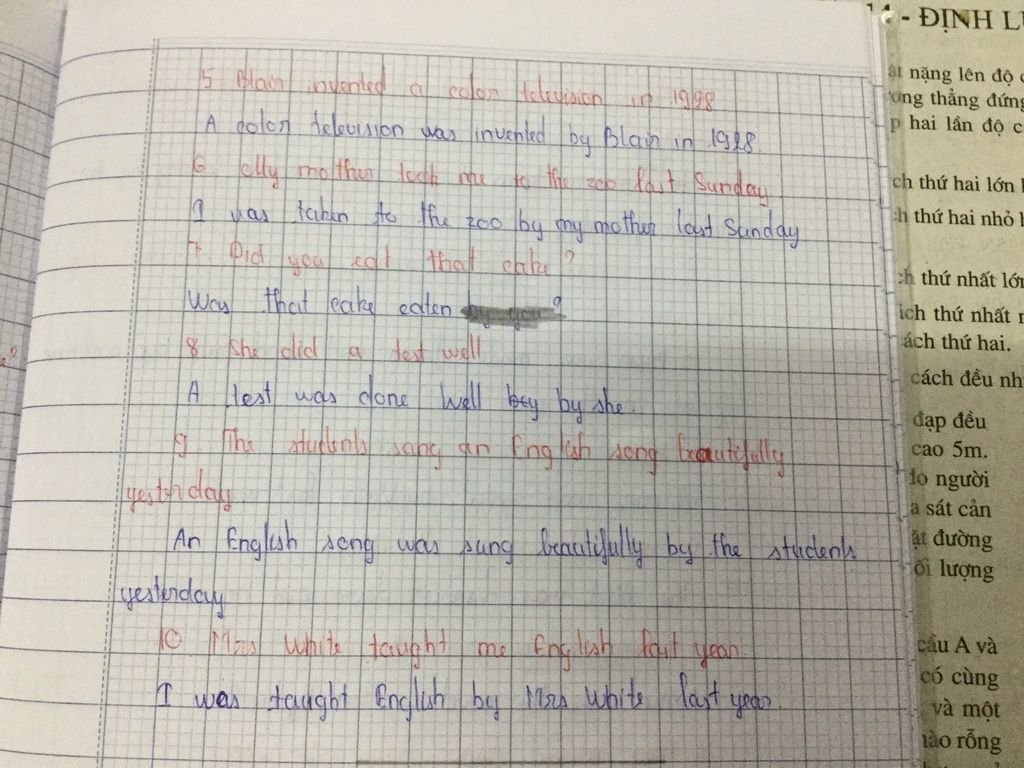 5 Blain invented a color television in 1928
A color television was invented by Blain in 1928.
6 My mother took me to the zoo last Sunday
I was taken to the zoo by my mother last Sunday
7 Did you eat that cake?
Was that cake eaten by you?
8 She did a test well
A test was done well by by she.
9 The students sang an English song beautifully
yesterday
An English song was sung beautifully by the students
yesterday
10 Mrs White taught me English last year.
I was taught English by Mrs White last year.
- ĐỊNH L
ặt nặng lên độ c
ơng thẳng đứng
p hai lần độ c
ch thứ hai lớn
h thứ hai nhỏ
ch thứ nhất lớn
ích thứ nhất
ách thứ hai.
cách đều nh
đạp đều
cao 5m.
do người
a sát cản
ặt đường
ối lượng
cầu A và
có cùng
và một
nào rỗng